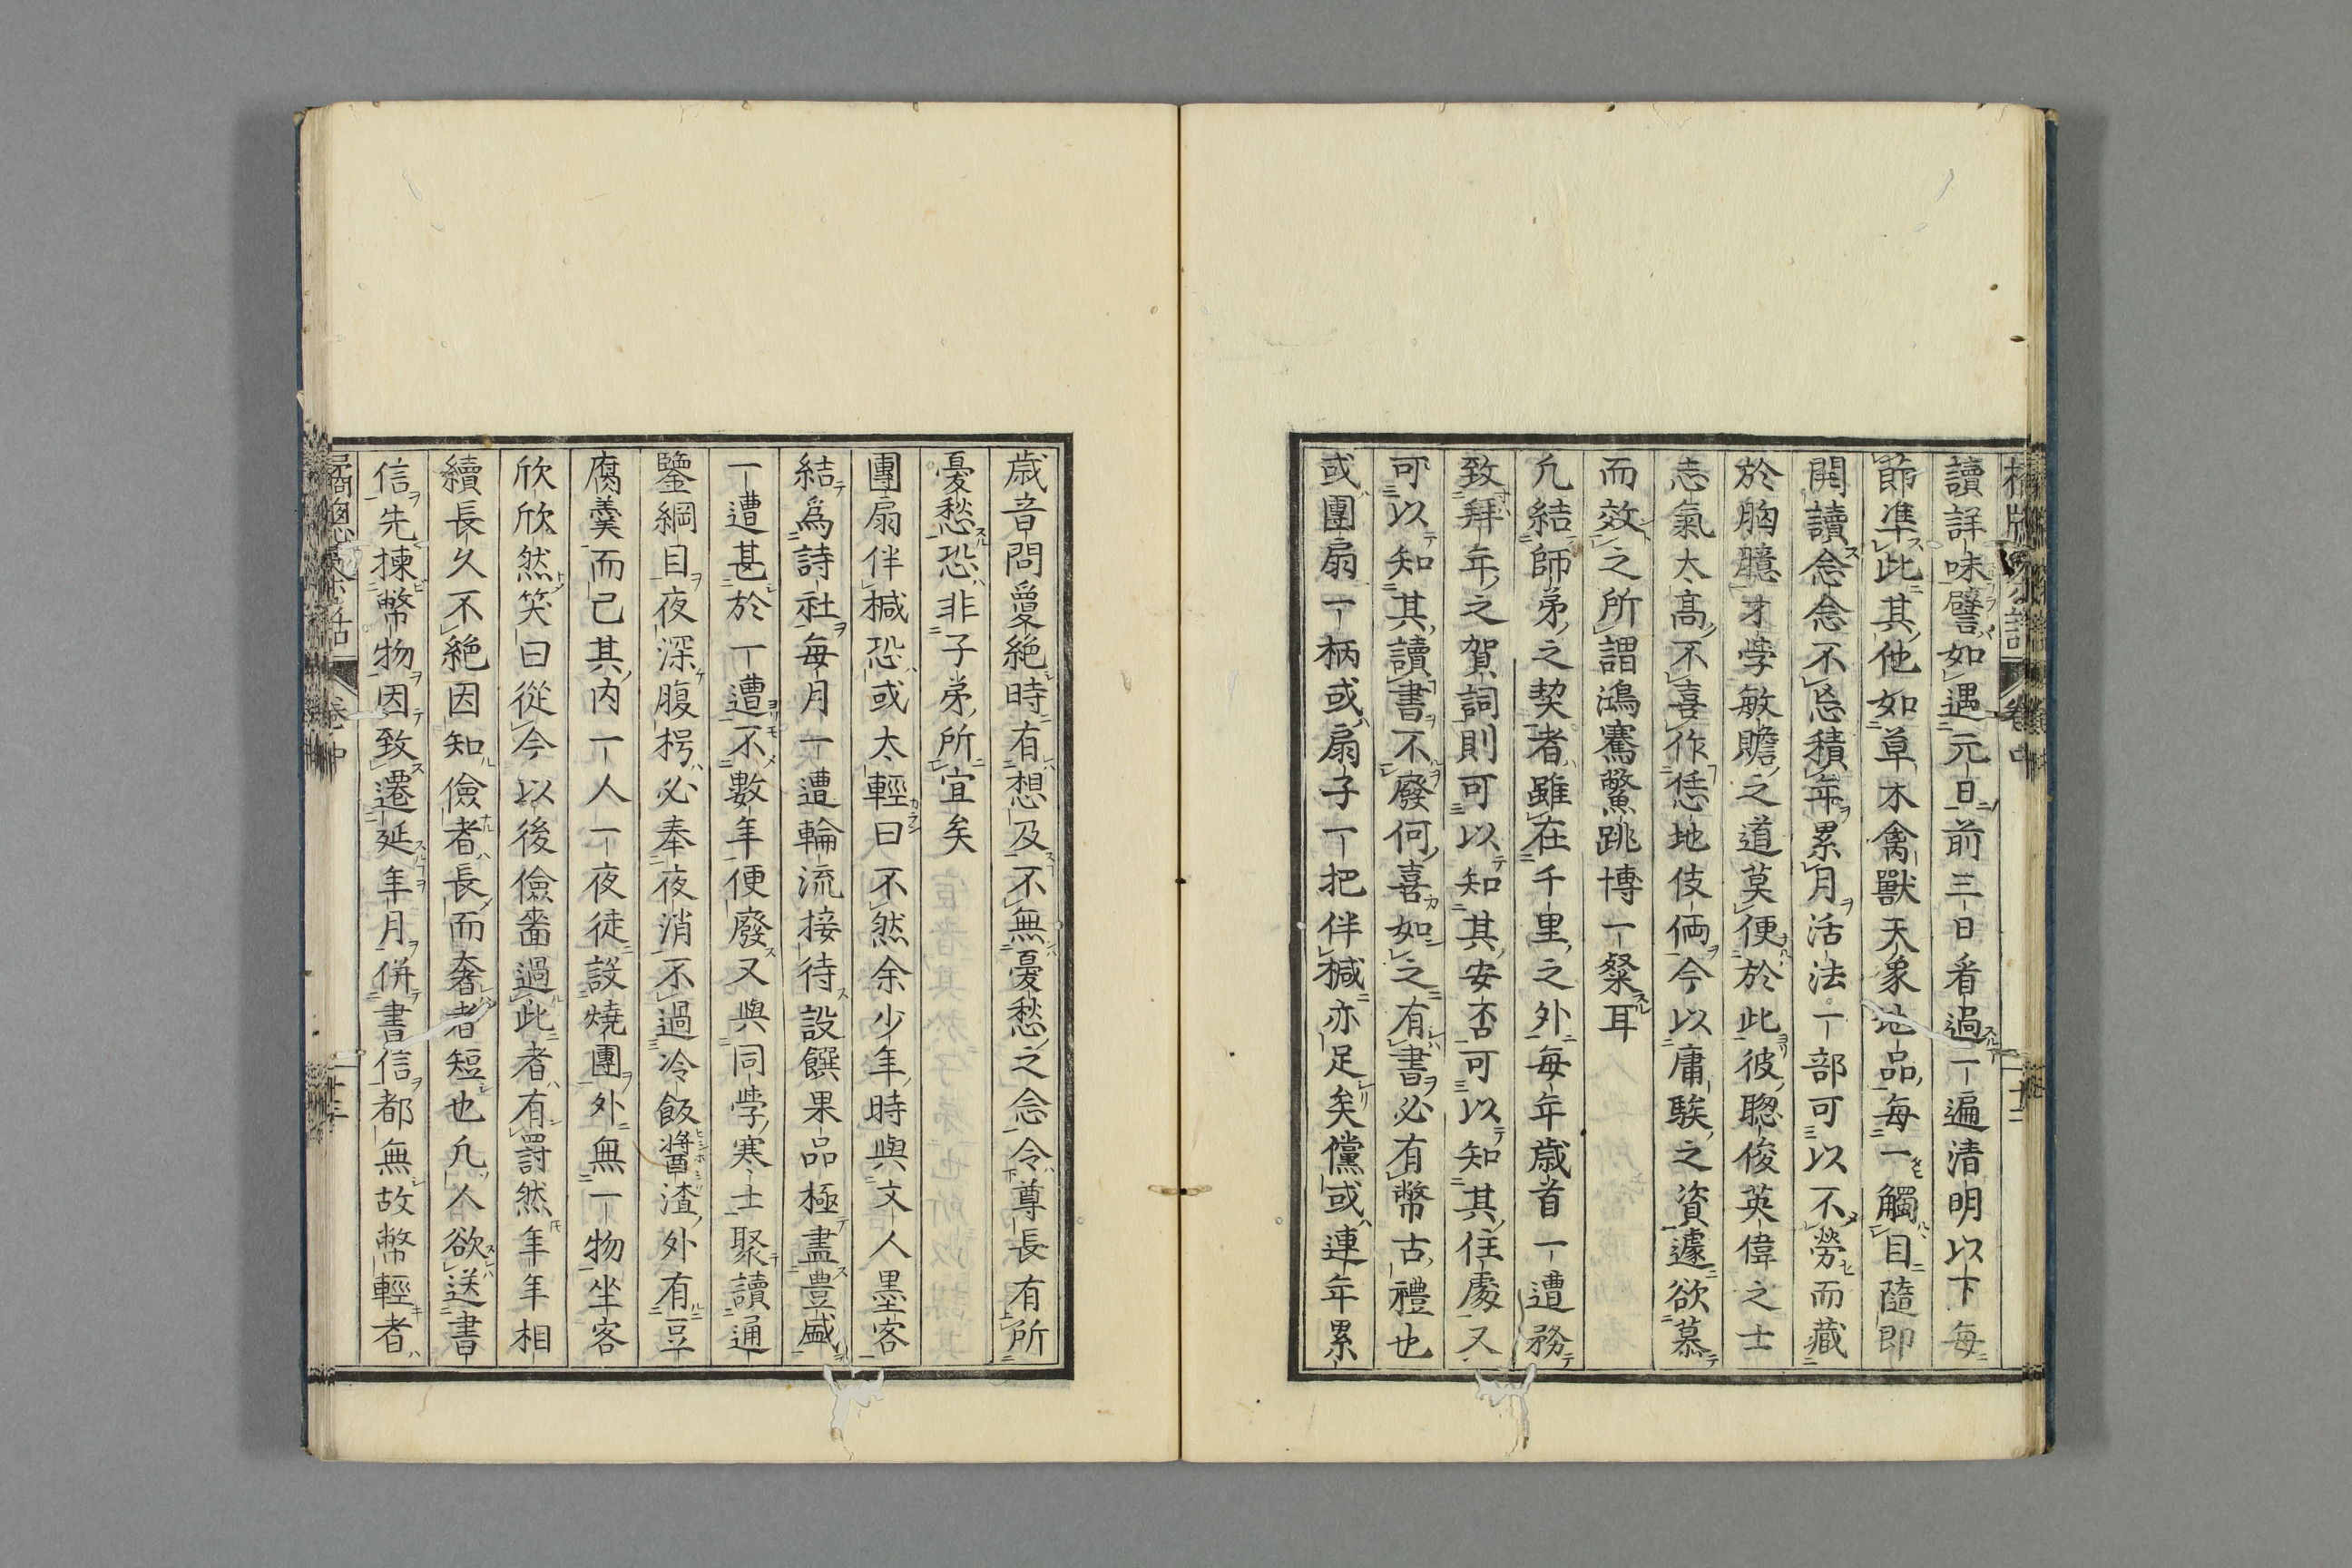 讀詳味譬如遇元日前三日看過一遍清明以下每
節準此其他如草木禽獸天象地品每一觸目隨即
開讀念念不忘積年累月活法一部可以不勞而藏
於胸臆才學敏贍之道莫便於此彼聡俊英偉之士
志氣太高不喜作恁地伎倆今以庸騃之資遽欲慕
而效之所謂鴻騫鱉跳博一粲耳
凢結師弟之契者雖在千里之外每年歳首一遭務
致拜年之賀詞則可以知其安否可以知其住處又
可以知其讀書不廢何喜如之有書必有幣古禮也
或團扇一柄或扇子一把伴椷亦足矣儻或連年累
歳音問憂絶時有想及不無憂愁之念令尊長有所
憂愁恐非子弟所宜矣
團扇伴椷恐或太輕曰不然余少年時與文人墨客
結爲詩社每月一遭輪流接待設饌果品極盡豊盛
一遭甚於一遭不數年便廢又與同學寒士聚讀通
鑒綱目夜深腹枵必奉夜消不過冷飯醬渣外有豆
腐羹而已其内一人一夜徒設燒團外無一物坐客
欣欣然笑曰從今以後儉嗇過此者有罸然年年相
續長久不絶因知儉者長而奢者短也凢人欲送書
信先揀幣物因致遷延年月併書信都無故幣輕者
卷中